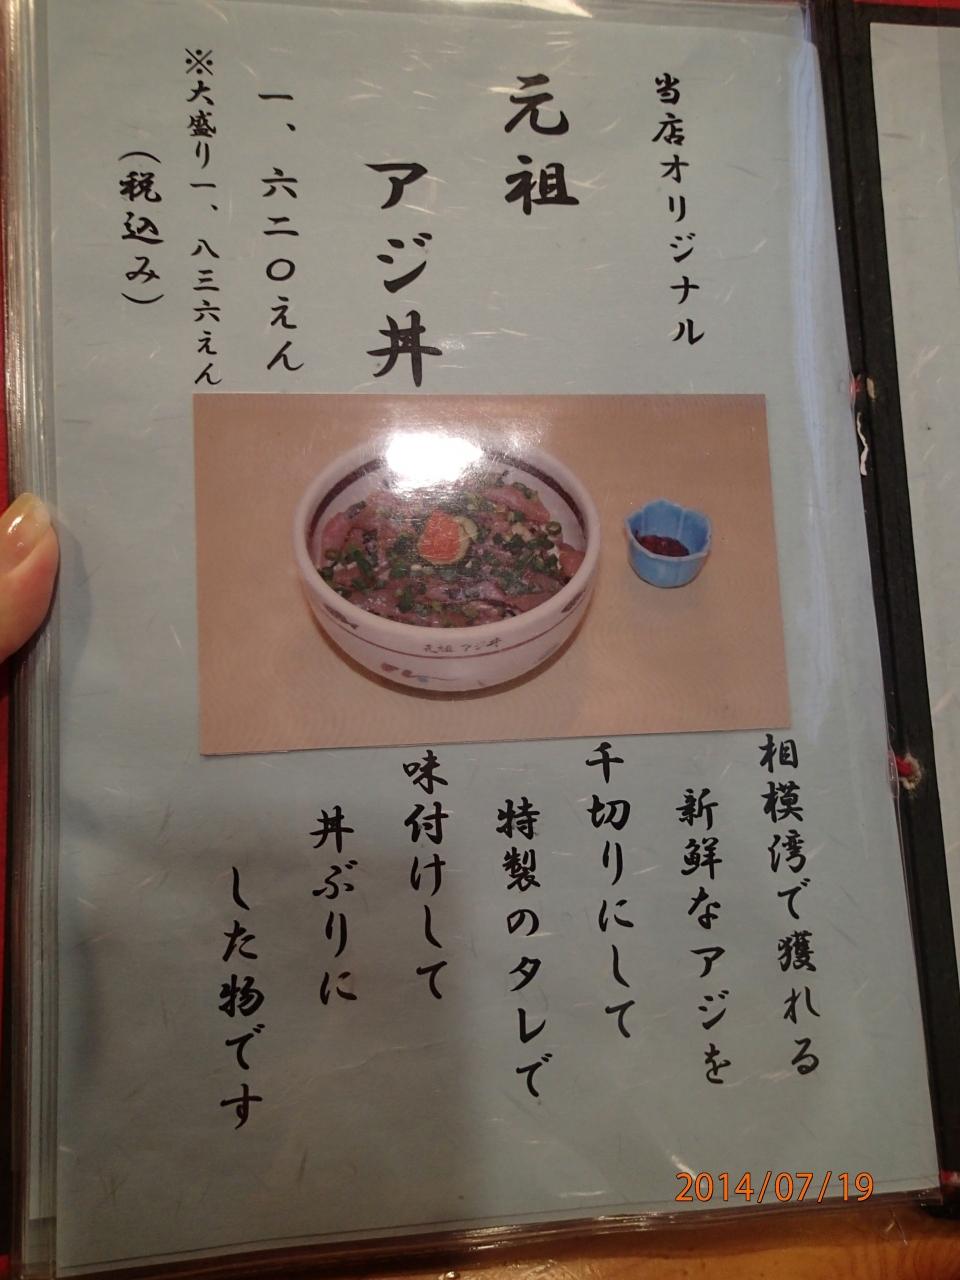 当店オリジナル
元祖
アジ丼
一、六二〇えん
※大盛り一、八三六えん
（税込み）
元祖 アジ丼
相模湾で獲れる
新鮮なアジを
千切りにして
特製のタレで
味付けして
丼ぶりに
した物です
2014/07/19